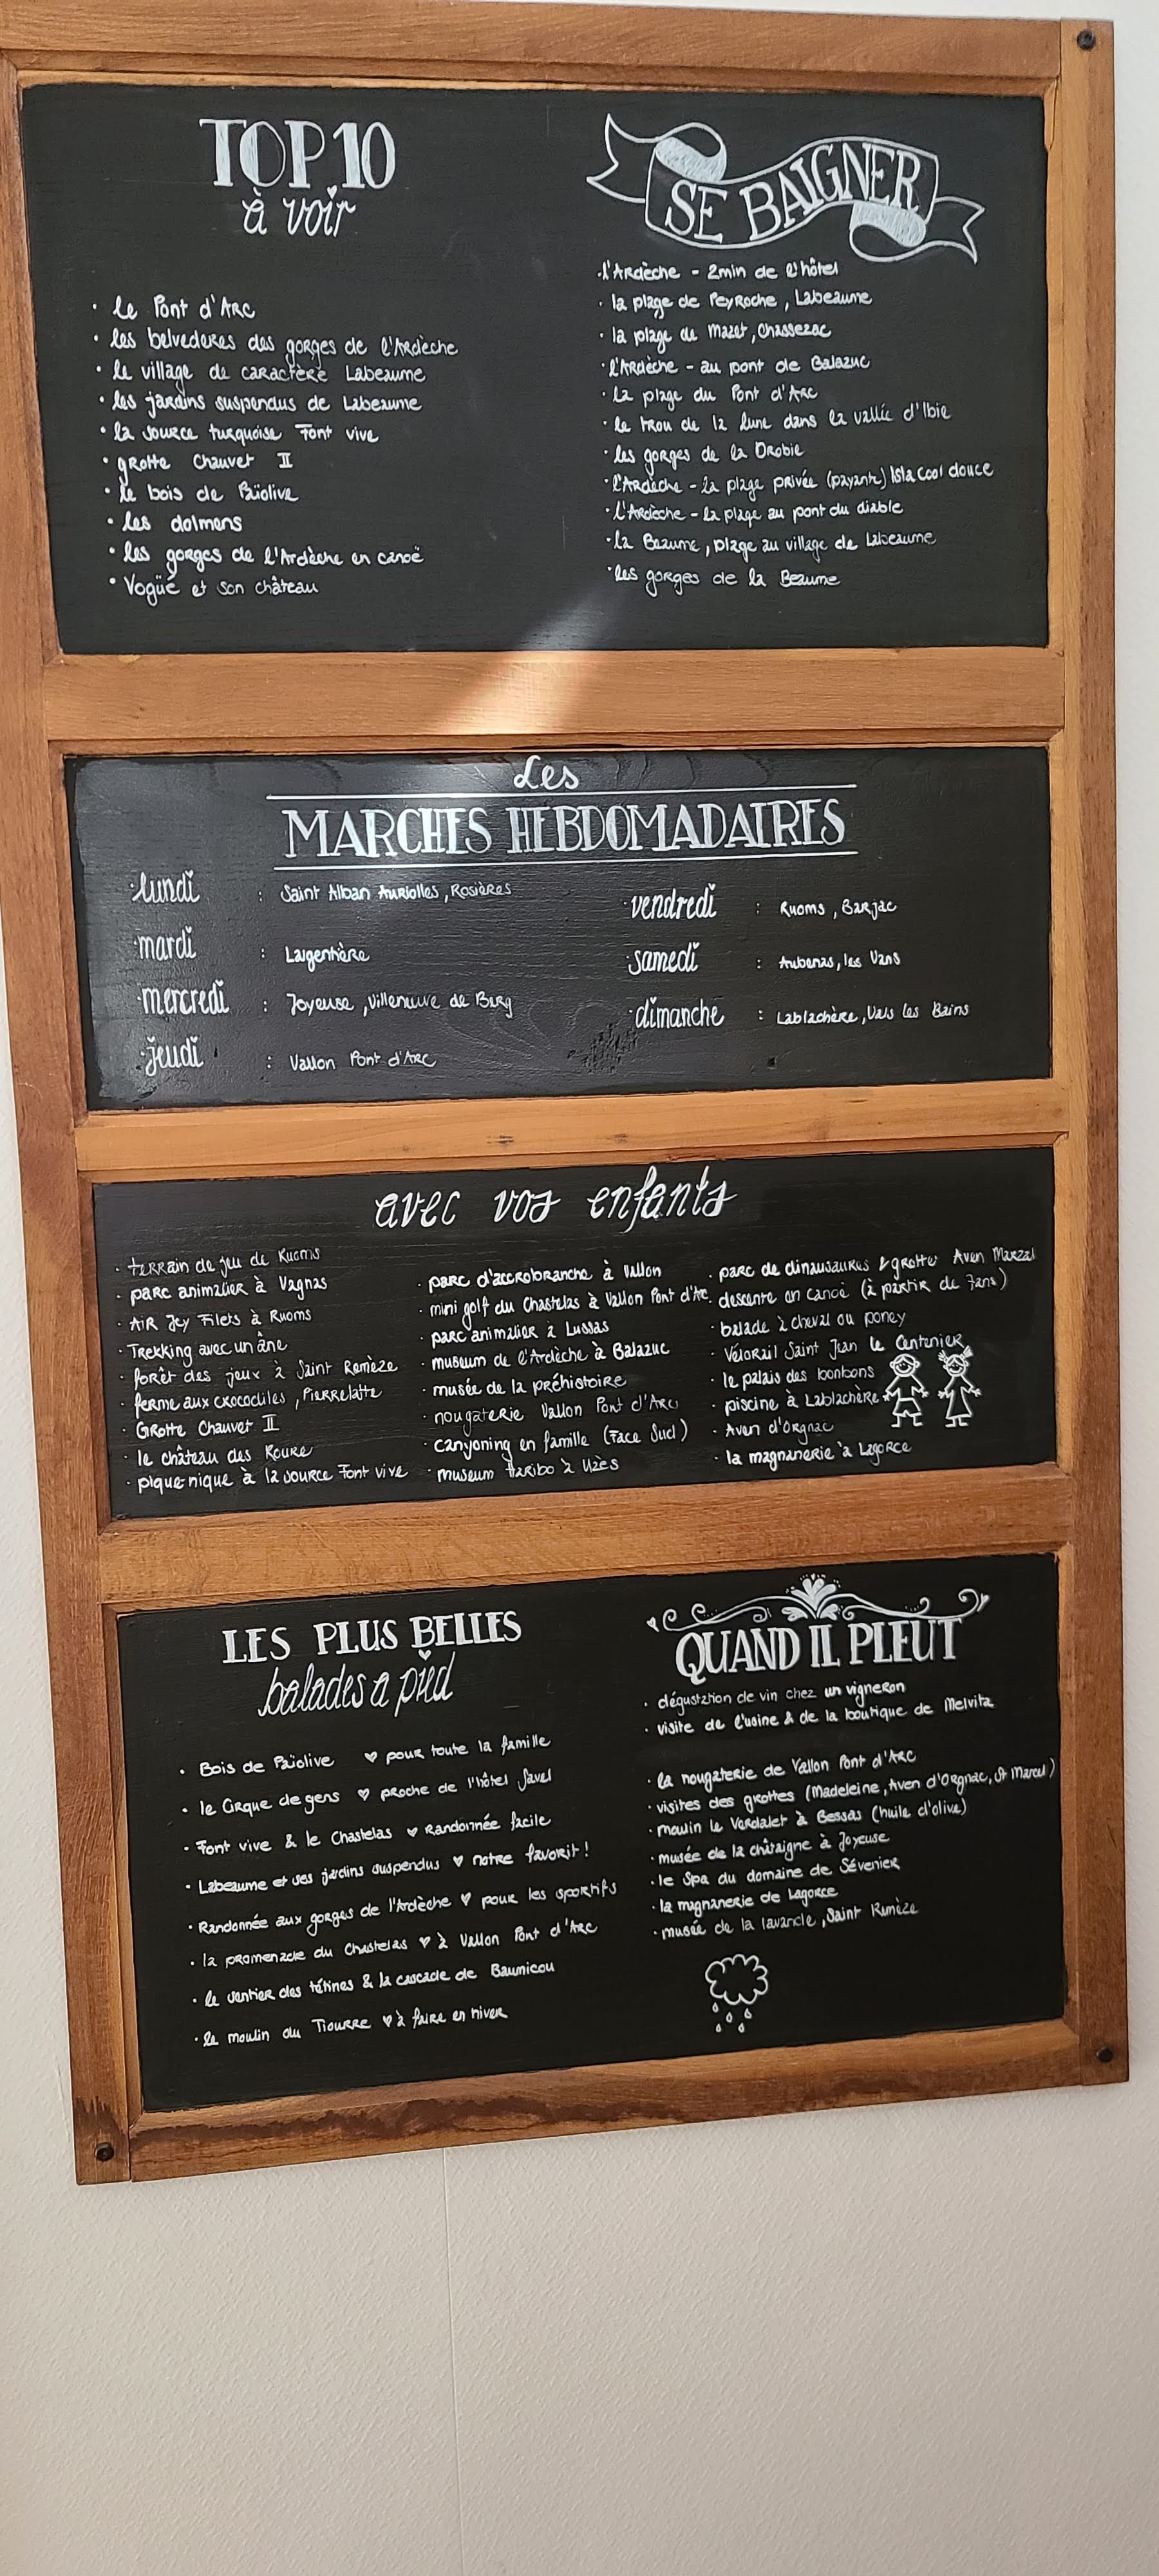 TOP 10
à voir
• le Pont d'Arc
• les belvederes des gorges de l'Ardèche
• le village de caractère Labeaume
• les jardins suspendus de Labeaume
• la source turquoise Font vive
• grotte Chauvet II
• le bois de Païolive
• les dolmens
• les gorges de l'Ardèche en canoë
• Vogüé et son château
SE BAIGNER
• l'Ardèche - 2min de l'hôtel
• la plage de Peyroche, Labeaume
• la plage de Mazet, Chassezac
• l'Ardèche - au pont de Balazuc
• la plage du Pont d'Arc
• le trou de la lune dans la vallée d'Ibie
• les gorges de la Drobie
• l'Ardèche - la plage privée (payante) Isla Cool douce
• l'Ardèche - la plage au pont du diable
• la Beaume, plage au village de Labeaume
• les gorges de la Beaume
Les
MARCHES HEBDOMADAIRES
• lundi : Saint Alban Auriolles, Rosières
• mardi : Largentière
• mercredi : Joyeuse, Villeneuve de Berg
• jeudi : Vallon Pont d'Arc
• vendredi : Ruoms, Barjac
• samedi : Aubenas, les Vans
• dimanche : Lablachère, Vals les Bains
avec vos enfants
• terrain de jeu de Ruoms
• parc animalier à Vagnas
• AiR Jey Filets à Ruoms
• Trekking avec un âne
• forêt des jeux à Saint Remèze
• ferme aux crocodiles, Pierrelatte
• Grotte Chauvet II
• le château des Roure
• pique-nique à la source Font vive
• parc d'accrobranche à Vallon
• mini golf du Chastelas à Vallon Pont d'Arc
• parc animalier à Lussas
• museum de l'Ardèche à Balazuc
• musée de la préhistoire
• nougaterie Vallon Pont d'Arc
• canyoning en famille (Face Sud)
• museum Haribo à Uzès
• parc de dinausaures & grotte Aven Marzal
• descente en canoë (à partir de 7ans)
• balade à cheval ou poney
• Vélorail Saint Jean le Centenier
• le palais des bonbons
• piscine à Lablachère
• Aven d'Orgnac
• la magnanerie à Lagorce
LES PLUS BELLES
balades a pied
• Bois de Païolive ♥ pour toute la famille
• le Cirque de gens ♥ proche de l'hôtel Savel
• Font vive & le Chastelas ♥ Randonnée facile
• Labeaume et ses jardins suspendus ♥ notre favorit!
• Randonnée aux gorges de l'Ardèche ♥ pour les sportifs
• la promenade du Chastelas ♥ à Vallon Pont d'Arc
• le sentier des tétines & la cascade de Baumicou
• le moulin du Tiourre ♥ à faire en hiver
QUAND IL PLEUT
• dégustation de vin chez un vigneron
• visite de l'usine & de la boutique de Melvita
• la nougaterie de Vallon Pont d'Arc
• visites des grottes (Madeleine, Aven d'Orgnac, St Marcel)
• moulin le Verdalet à Bessas (huile d'olive)
• musée de la châtaigne à Joyeuse
• le Spa du domaine de Sévenier
• la magnanerie de Lagorce
• musée de la lavande, Saint Remèze